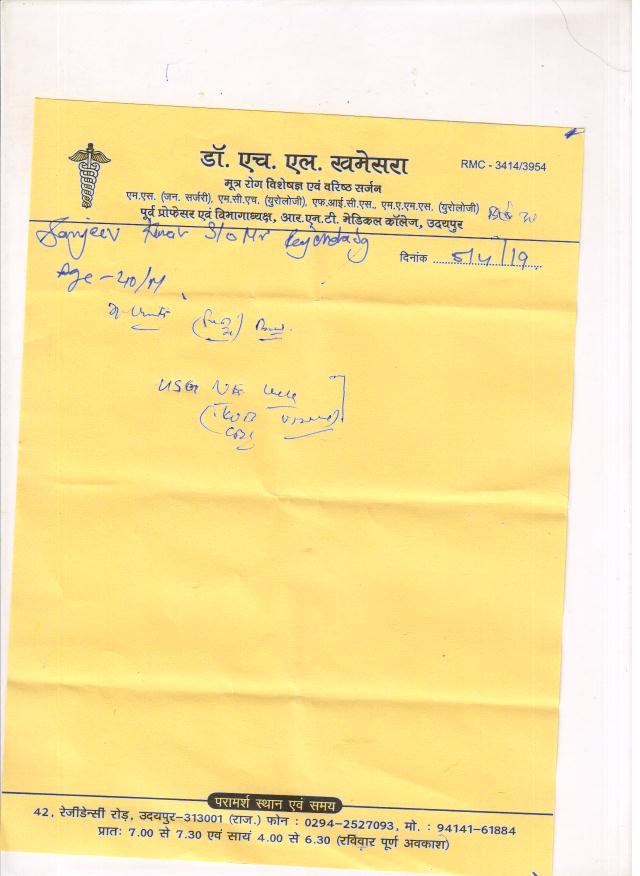 डॉ. एच. एल. खमेसरा
RMC - 3414/3954
मूत्र रोग विशेषज्ञ एवं वरिष्ठ सर्जन
एम.एस. (जन. सर्जरी), एम.सी.एच. (युरोलोजी), एफ.आई.सी.एस., एम.ए.एम.एस. (युरोलोजी)
पूर्व प्रोफेसर एवं विभागाध्यक्ष, आर.एन.टी. मेडिकल कॉलेज, उदयपुर
Sanjeev S/o Mr
दिनांक 5/4/19
Age - 40/M
USG
परामर्श स्थान एवं समय
42, रेजीडेन्सी रोड़, उदयपुर-313001 (राज.) फोन : 0294-2527093, मो. : 94141-61884
प्रातः 7.00 से 7.30 एवं सायं 4.00 से 6.30 (रविवार पूर्ण अवकाश)